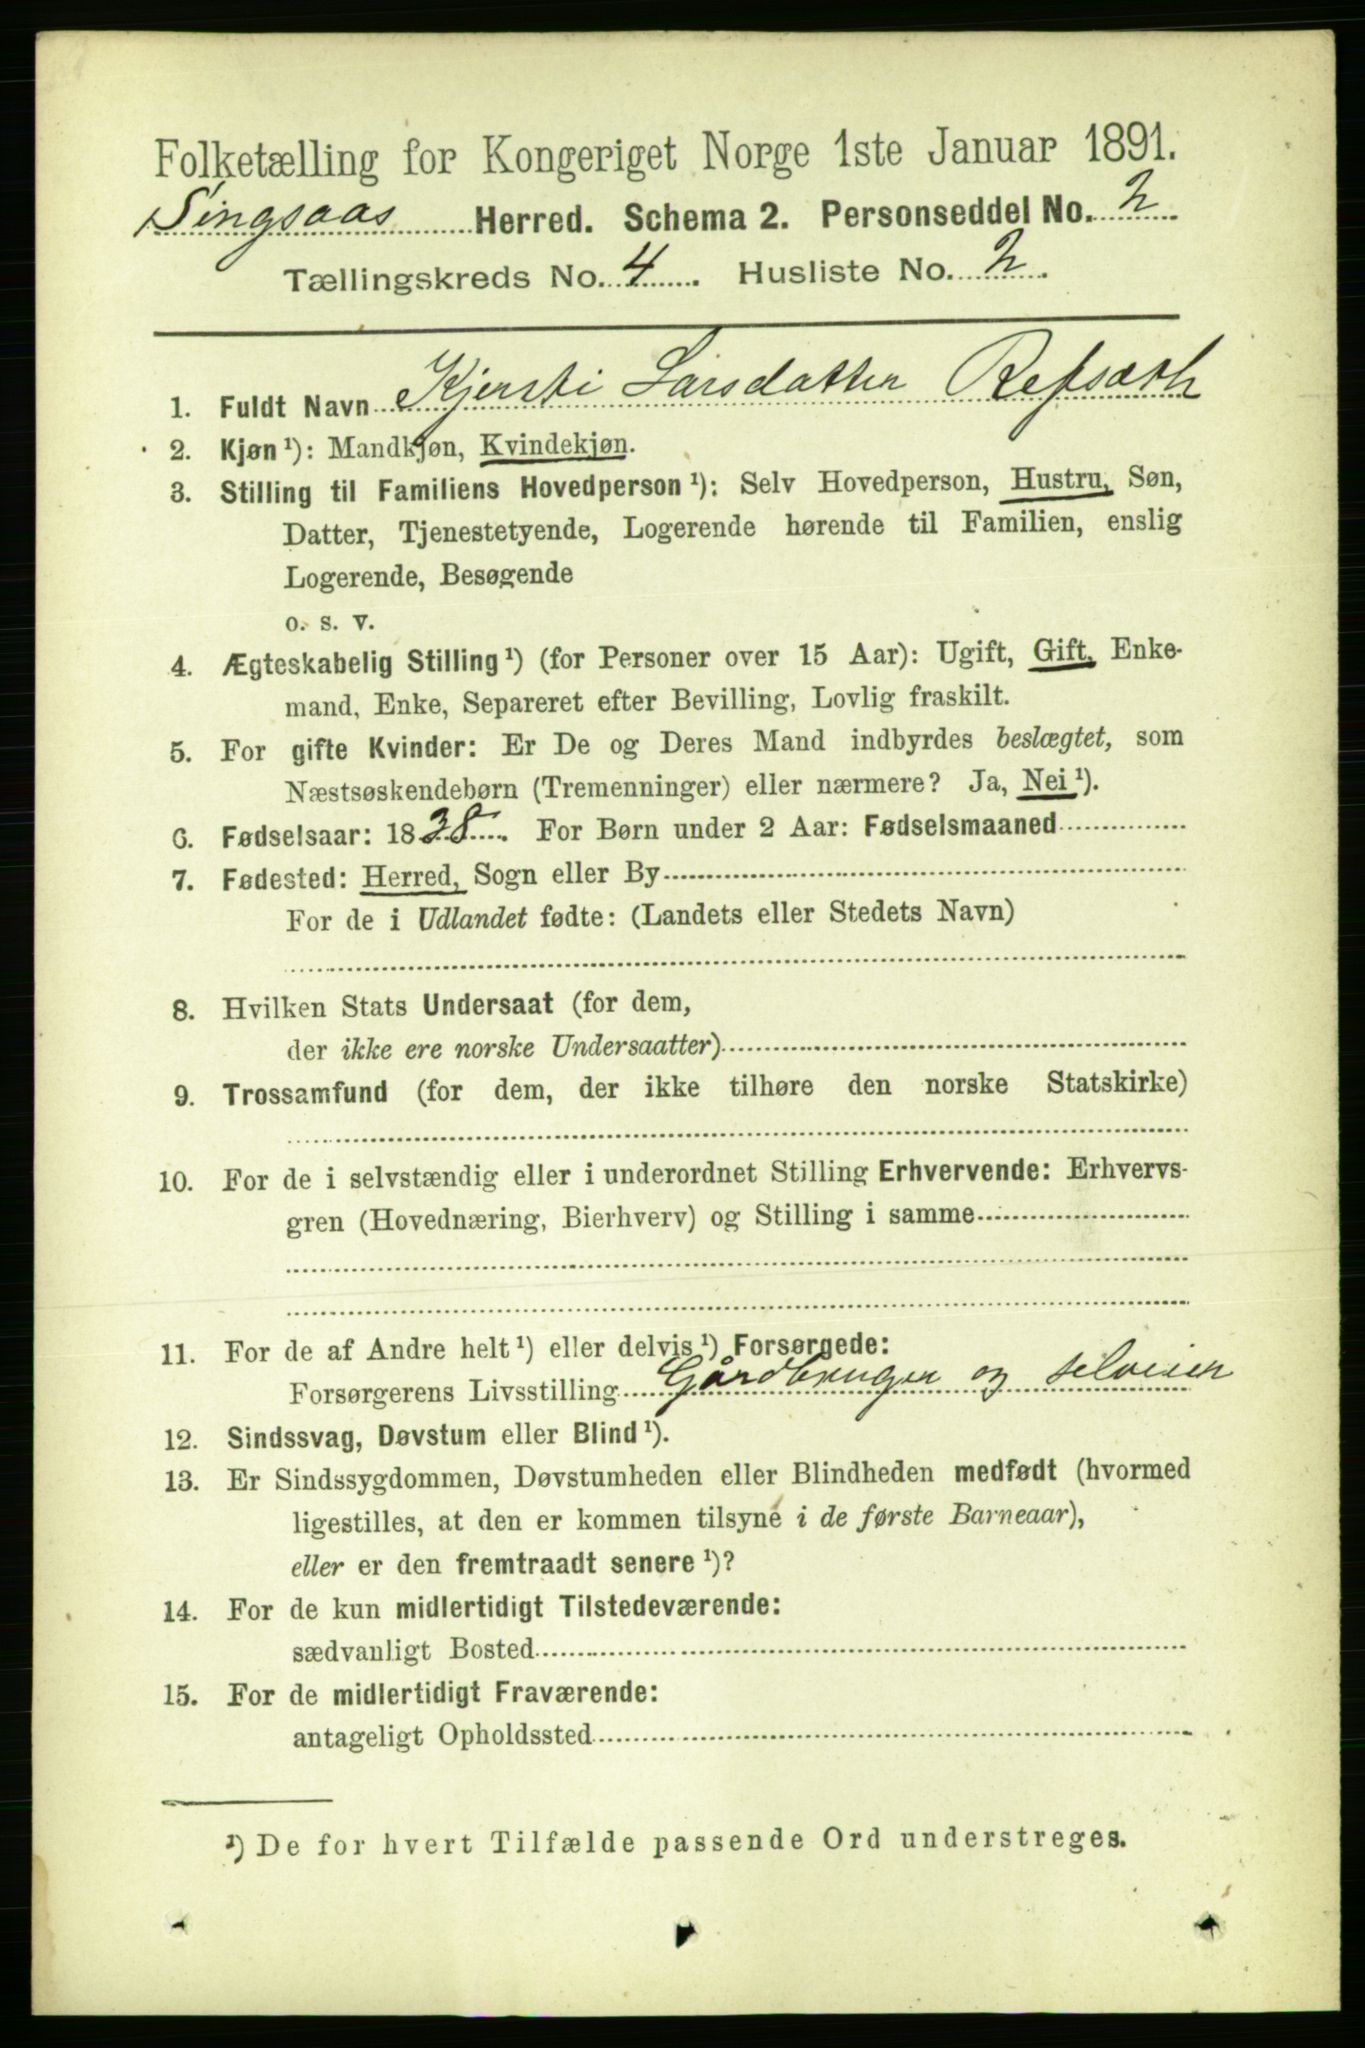 Folketælling for Kongeriget Norge 1ste Januar 1891.
Singsaas Herred. Schema 2. Personseddel No. 2
Tællingskreds No. 4. Husliste No. 2.
1. Fuldt Navn Kjersti Larsdatter Refsæth
2. Kjøn ¹): Mandkjøn, Kvindekjøn.
3. Stilling til Familiens Hovedperson ¹): Selv Hovedperson, Hustru, Søn,
Datter, Tjenestetyende, Logerende hørende til Familien, enslig
Logerende, Besøgende
o. s. v.
4. Ægteskabelig Stilling ¹) (for Personer over 15 Aar): Ugift, Gift, Enke-
mand, Enke, Separeret efter Bevilling, Lovlig fraskilt.
5. For gifte Kvinder: Er De og Deres Mand indbyrdes beslægtet, som
Næstsøskendebørn (Tremenninger) eller nærmere? Ja, Nei ¹).
6. Fødselsaar: 1838. For Børn under 2 Aar: Fødselsmaaned
7. Fødested: Herred, Sogn eller By
For de i Udlandet fødte: (Landets eller Stedets Navn)
8. Hvilken Stats Undersaat (for dem,
der ikke ere norske Undersaatter)
9. Trossamfund (for dem, der ikke tilhøre den norske Statskirke)
10. For de i selvstændig eller i underordnet Stilling Erhvervende: Erhvervs-
gren (Hovednæring, Bierhverv) og Stilling i samme
11. For de af Andre helt ¹) eller delvis ¹) Forsørgede:
Forsørgerens Livsstilling Gårdbruger og selveier
12. Sindssvag, Døvstum eller Blind ¹).
13. Er Sindssygdommen, Døvstumheden eller Blindheden medfødt (hvormed
ligestilles, at den er kommen tilsyne i de første Barneaar),
eller er den fremtraadt senere ¹)?
14. For de kun midlertidigt Tilstedeværende:
sædvanligt Bosted
15. For de midlertidigt Fraværende:
antageligt Opholdssted
¹) De for hvert Tilfælde passende Ord understreges.